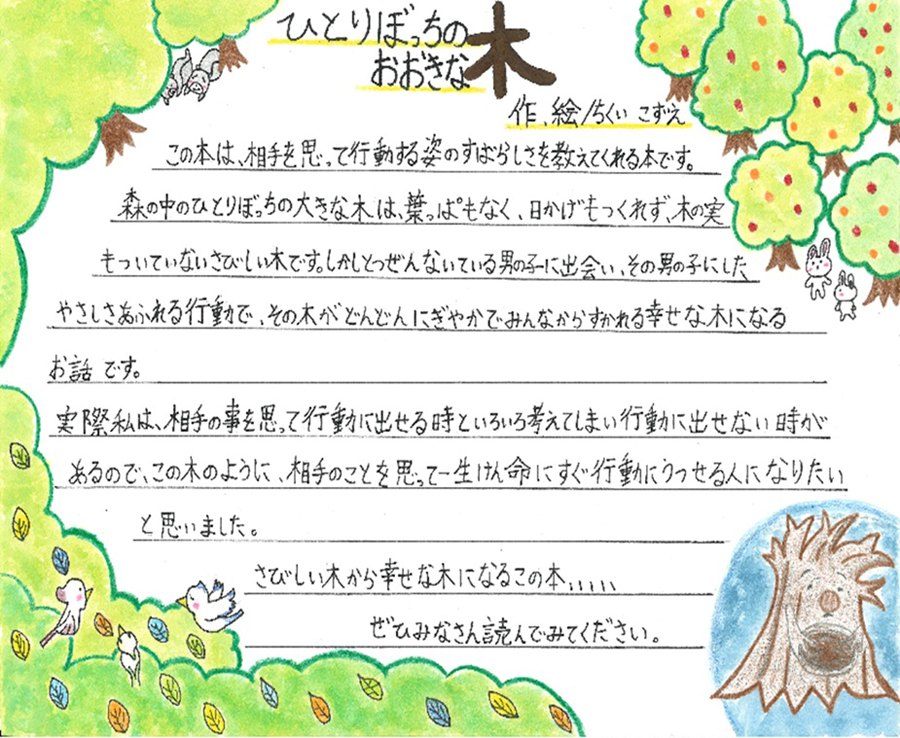 ひとりぼっちの
おおきな木
作、絵/ちくい こずえ
この本は、相手を思って行動する姿のすばらしさを教えてくれる本です。
森の中のひとりぼっちの大きな木は、葉っぱもなく、日かげもつくれず、木の実
もついていないさびしい木です。しかしとつぜんないている男の子に出会い、その男の子にした
やさしさあふれる行動で、その木がどんどんにぎやかでみんなからすかれる幸せな木になる
お話です。
実際私は、相手の事を思って行動に出せる時といろいろ考えてしまい行動に出せない時が
あるので、この木のように、相手のことを思って一生けん命にすぐ行動にうつせる人になりたい
と思いました。
さびしい木から幸せな木になるこの本、、、、、
ぜひみなさん読んでみてください。